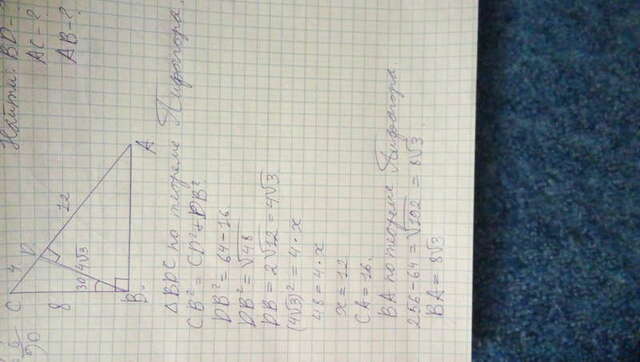 6/90
Найти: BD-?
AC-?
AB-?
C 4
D
8
12
30
4√3
B
A
△BDC по теореме Пифагора
CB² = CD²+DB²
DB² = 64-16
DB² = √48
DB = 2√12 = 4√3
(4√3)² = 4·x
48 = 4·x
x = 12
CA = 16.
BA по теореме Пифагора
256-64 = √192 = 8√3
BA = 8√3